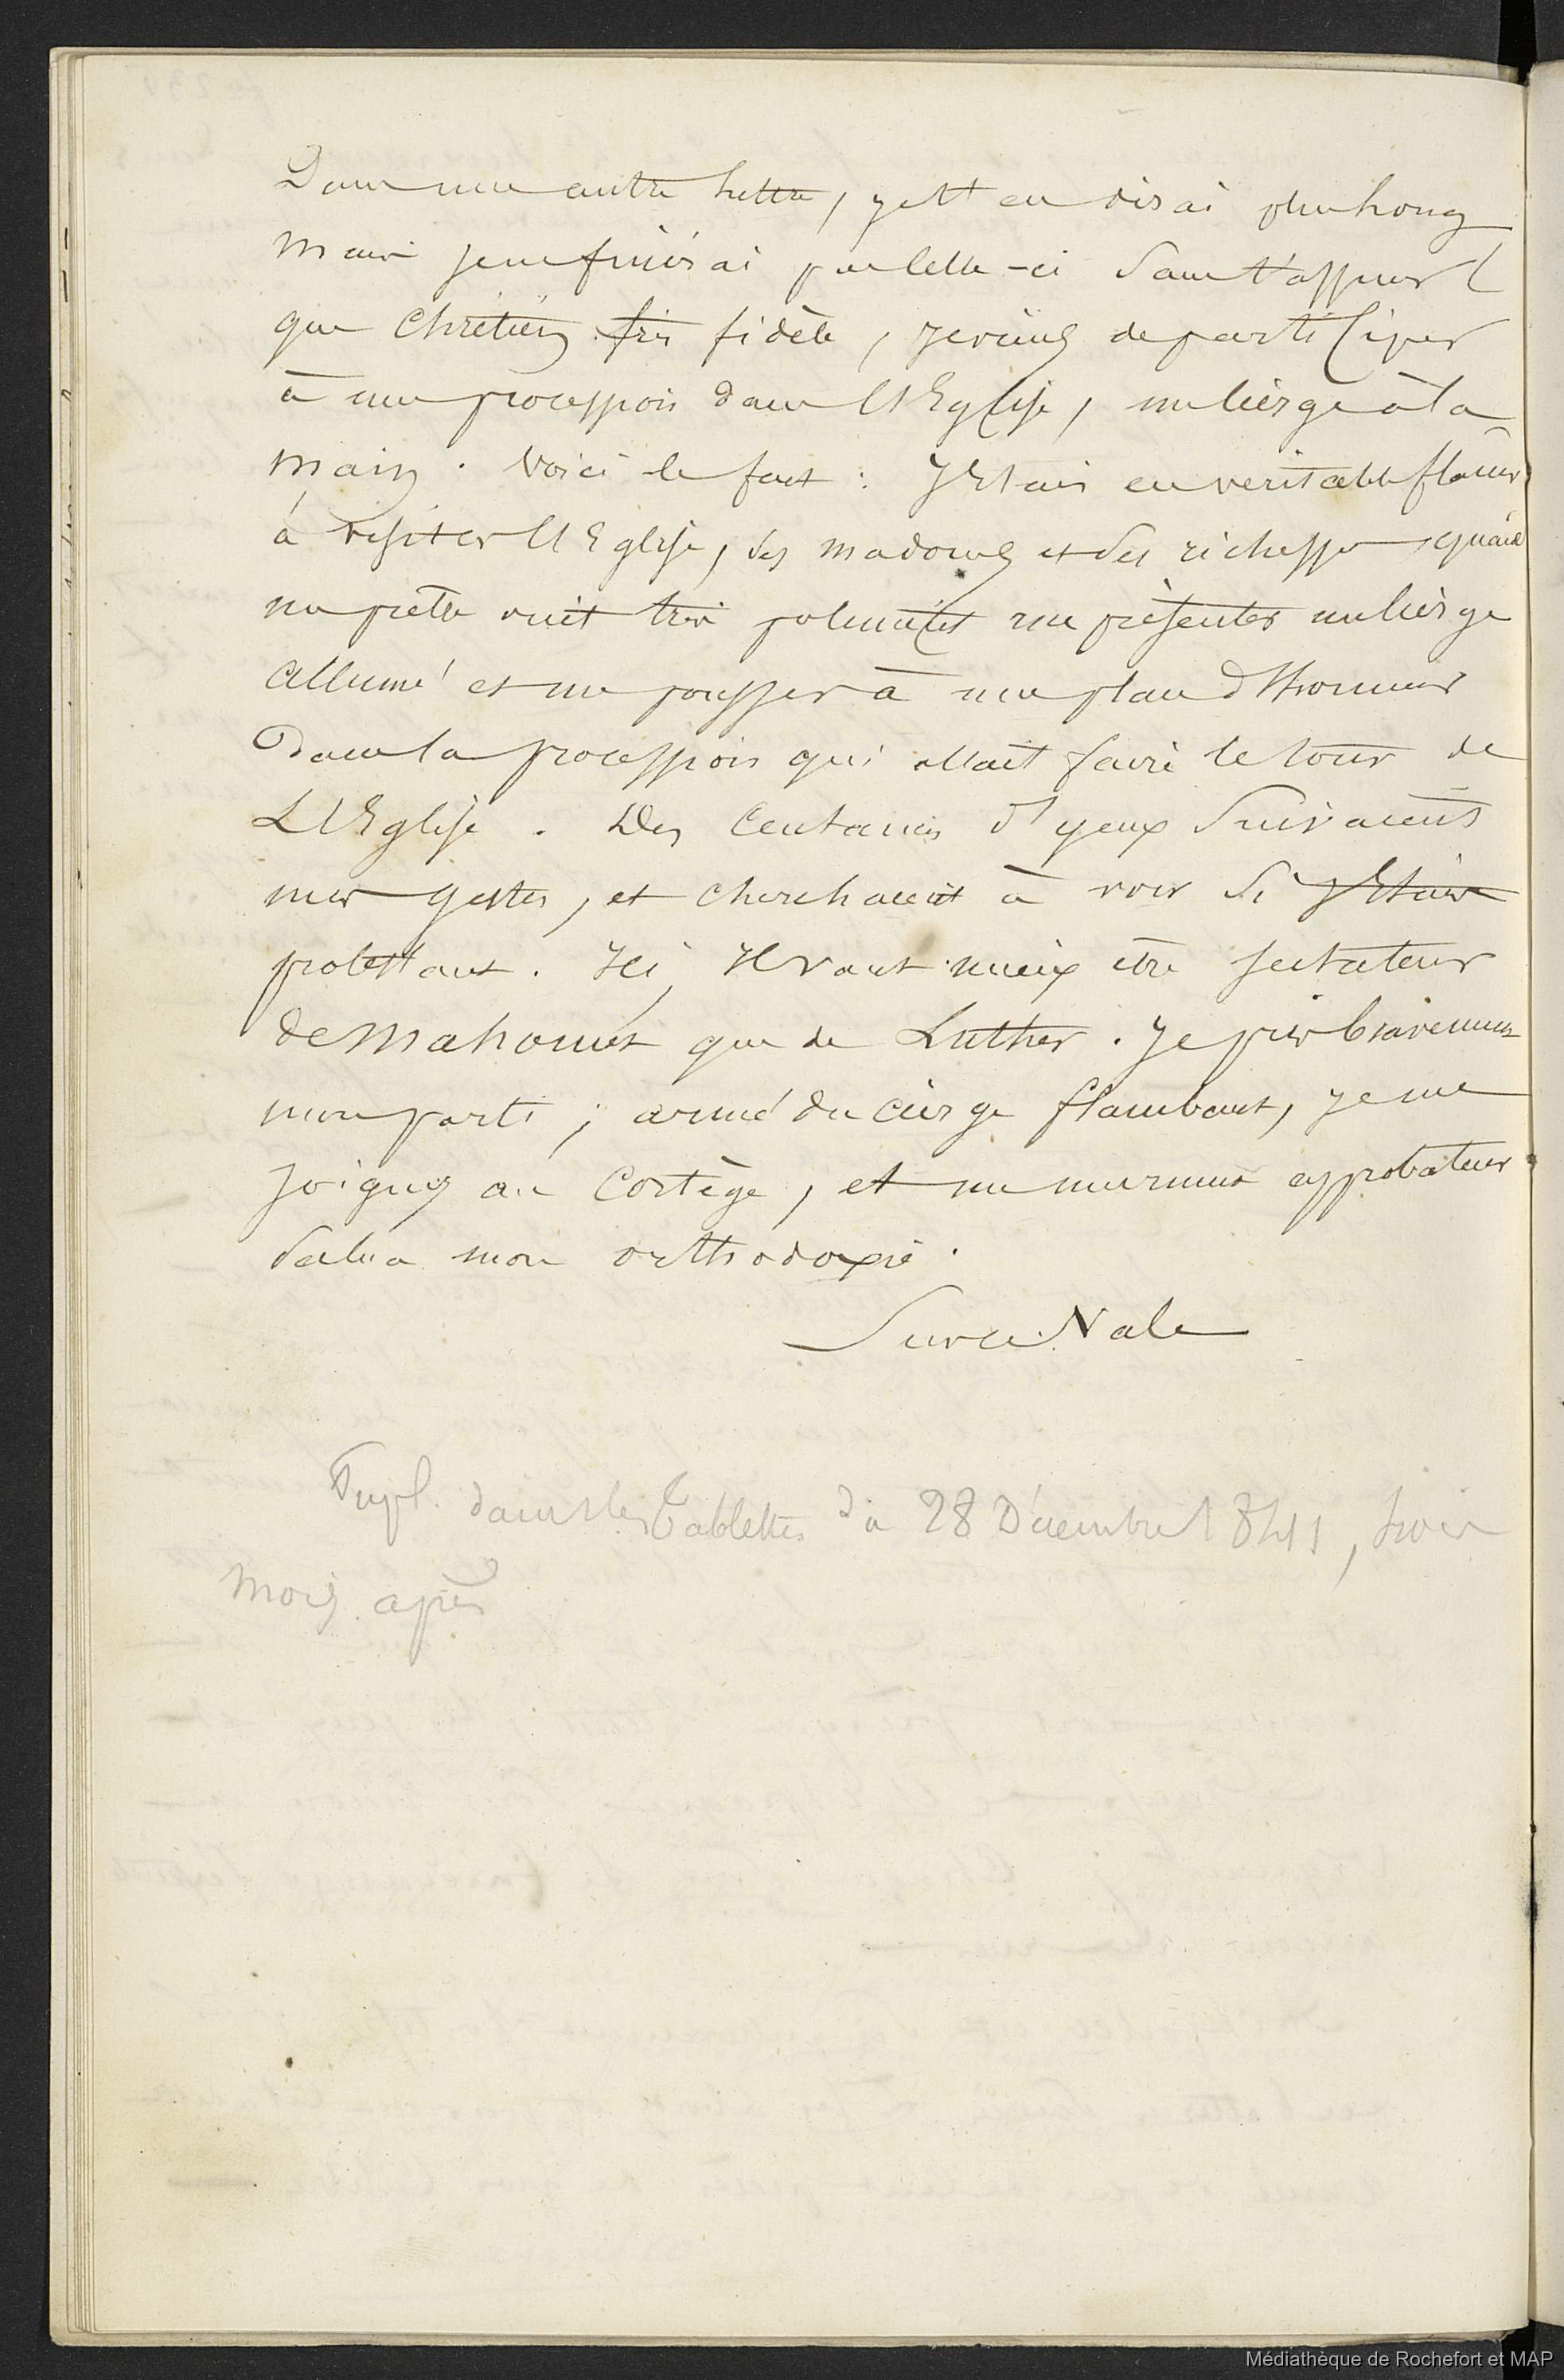 Dans une autre lettre, je t'en dirai plus long
Mais je ne finirai pas celle-ci sans t'assurer
que chrétien très fidèle, je viens de participer
à une procession dans l'Eglise, un cierge à la
main. Voici le fait : J'étais en veritable flâneur
à visiter l'Eglise, ses madones et ses richesses, quand
un prêtre vint très poliment me présenter un cierge
allumé et me pousser à une place d'honneur
dans la procession qui allait faire le tour de
L'Eglise. Des centaines d'yeux suivaient
mes gestes, et cherchaient à voir si j'étais
protestant. Ici, il vaut mieux être sectateur
de Mahomet que de Luther. Je pris bravement
mon parti ; armé du cierge flambant, je me
joignis au cortège, et un murmure approbateur
salua mon orthodoxie.
Dupl. dans les Tablettes du 28 Décembre 1841, trois
mois après
Médiathèque de Rochefort et MAP